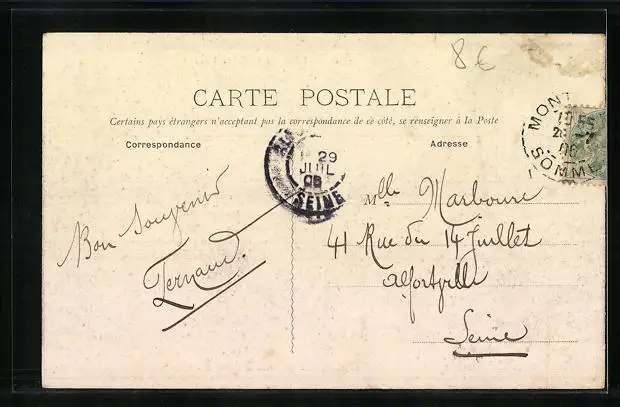 8€
CARTE POSTALE
Certains pays étrangers n'acceptant pas la correspondance de ce côté, se renseigner à la Poste
Correspondance
Adresse
29
JUIL
SEINE
MONT
Bon Souvenir
Fernand.
Mlle Marboure
41 Rue du 14 Juillet
Alfortville
Seine